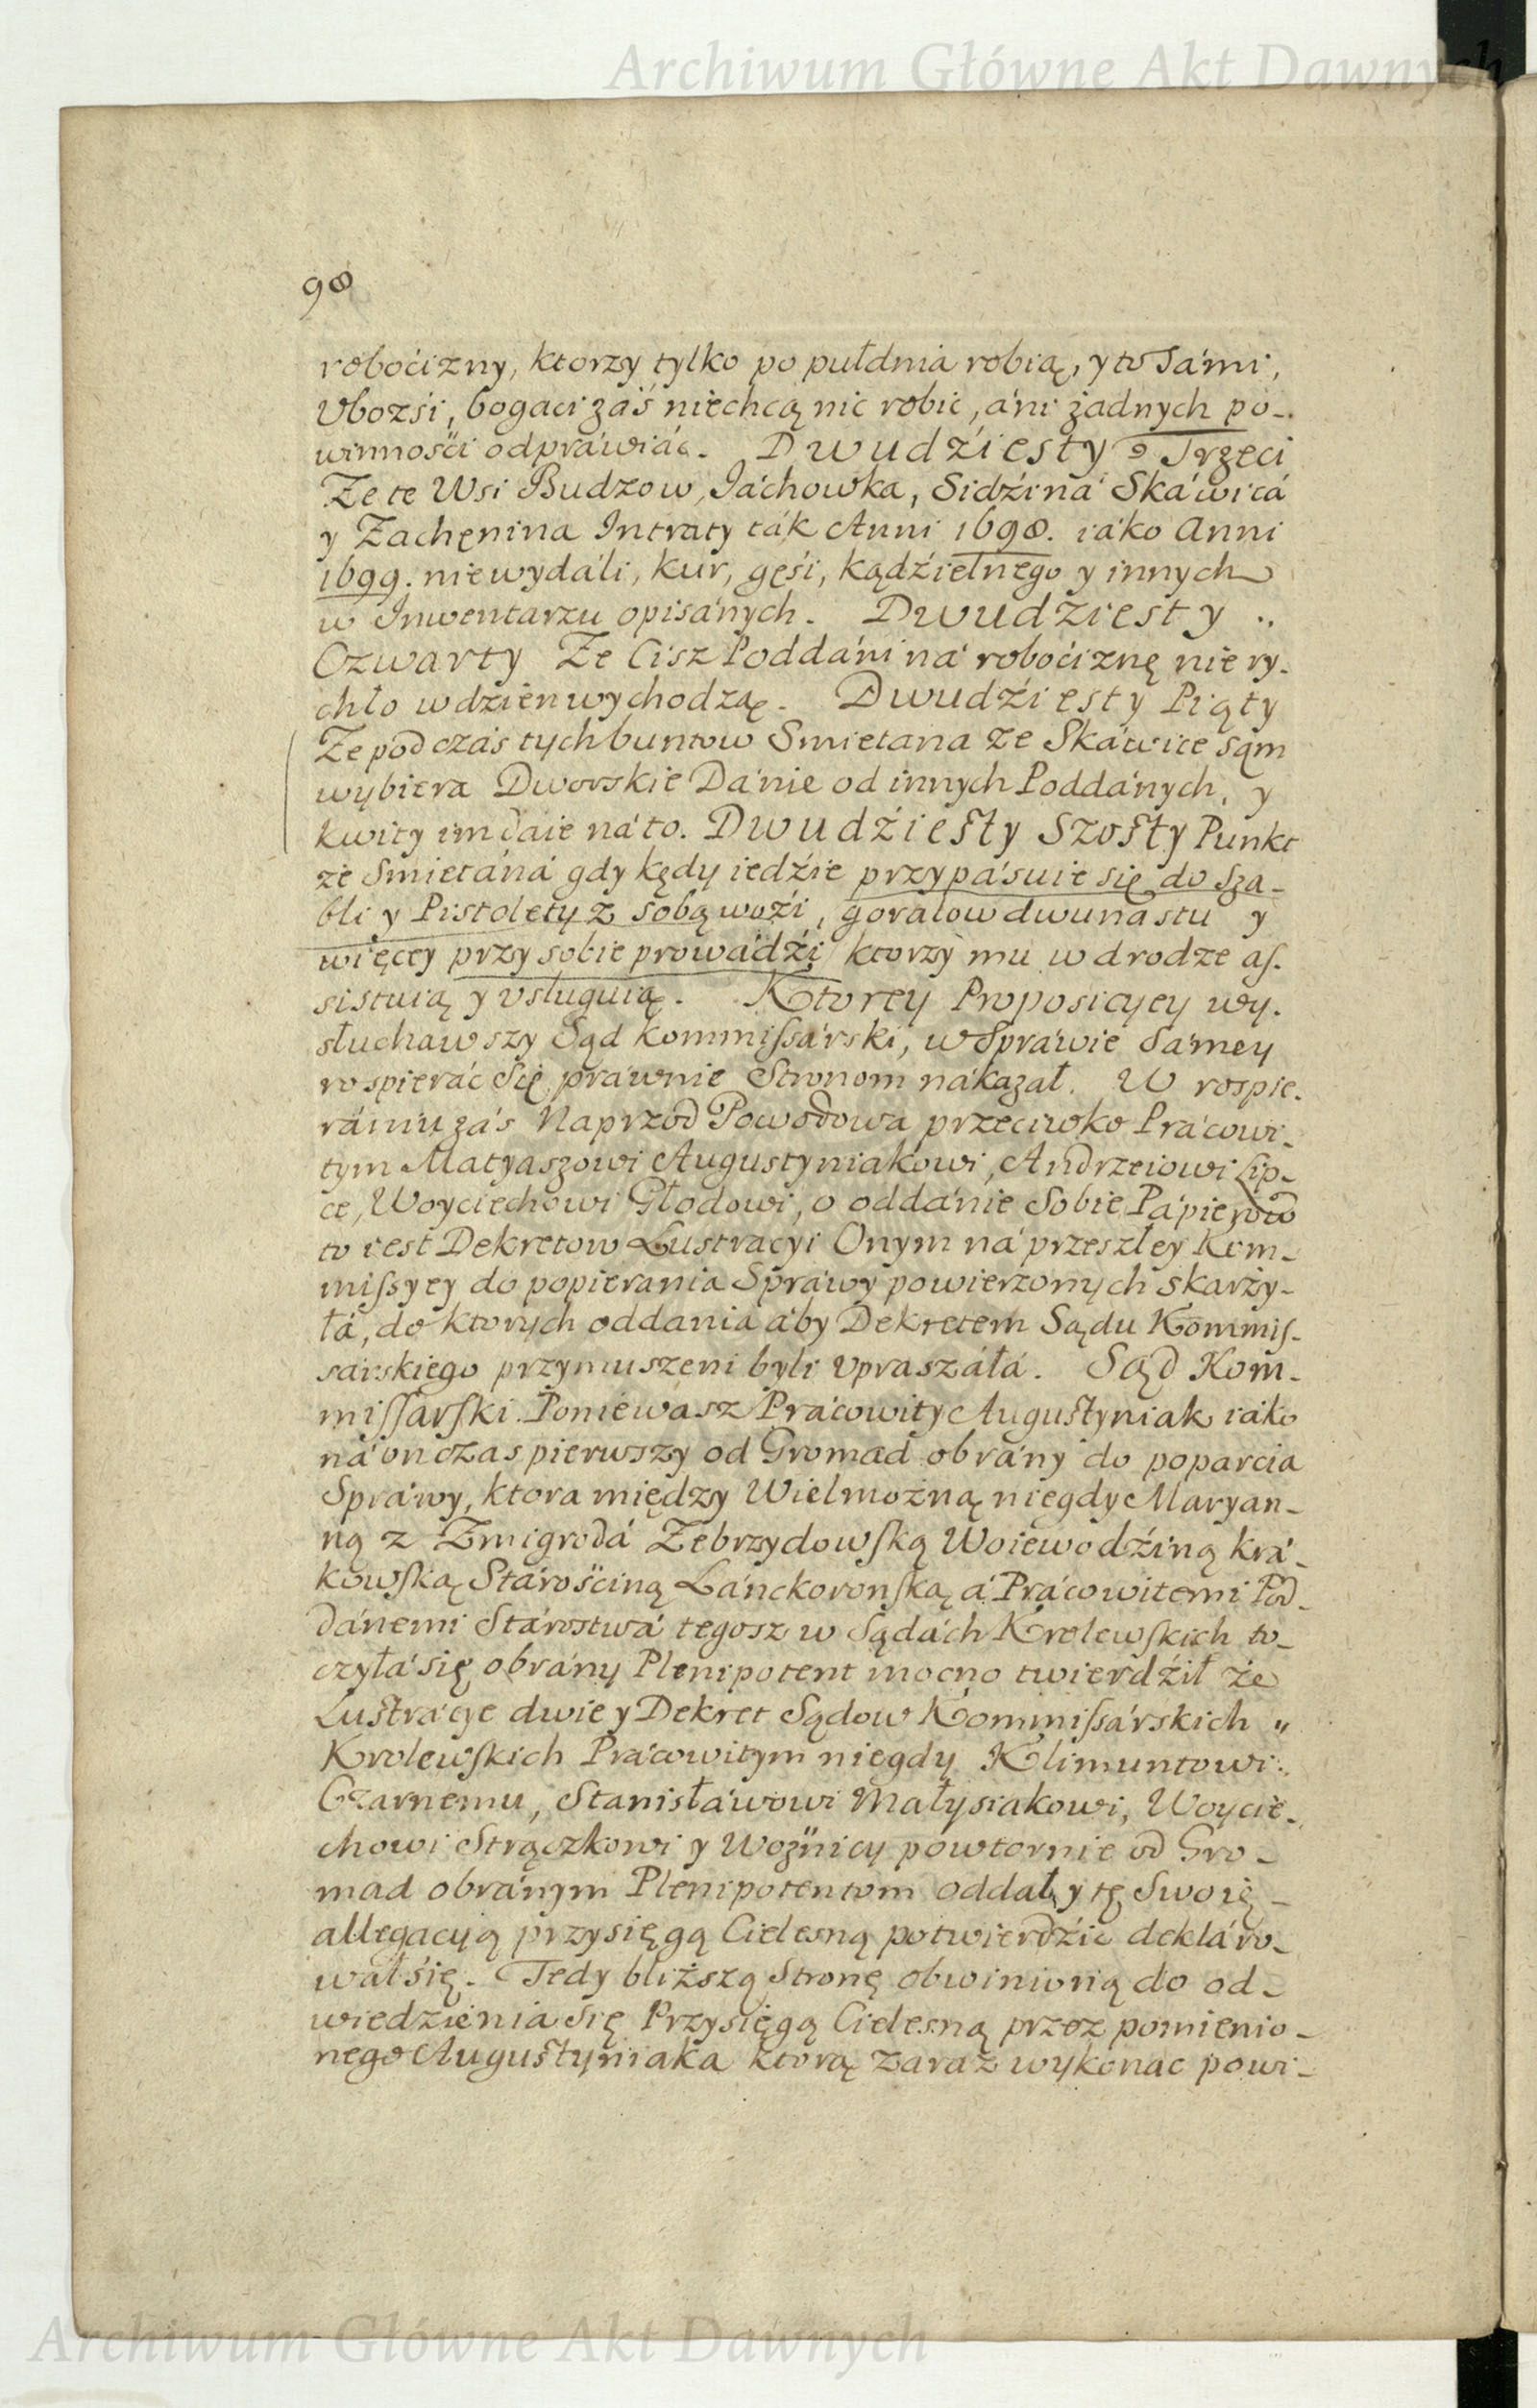 Archiwum Główne Akt Dawnych
98
robocizny, ktorzy tylko po pułdnia robią, y to sámi,
Vbozśi, bogaci záś niechcą nic robic, áni żadnych po-
winnośći odpráwiáć. Dwudźiesty Trzeci
Ze te Wsi Budzow, Jáchowka, Sidźiná Skáwicá
y Zachęnina Intraty ták Anni 1698. iáko Anni
1699. niewydáli, kur, gęśi, kądźielnego y innych
w Inwentarzu opisánych. Dwudziesty ..
Czwarty Ze Cisz Poddáni ná robociznę niery-
chło wdzien wychodzą. Dwudźiesty Piąty
Ze podczás tych buntow Smietana ze Skáwice sąm
wybiera Dworskie Dánie od innych Poddánych, y
kwity im daie náto. Dwudźiesty Szosty Punkt
ze Smietáná gdy kędy iedźie przypásuie się do Sza-
bli y Pistolety z sobą woźi, goralow dwunastu y
więcey przy sobie prowádźi ktorzy mu w drodze as-
sistuią y vsługuią. Ktorey Proposicyey wy-
słuchawszy Sąd kommissárski, w Spráwie Sámey
rospieráć Się práwnie Stronom nákazał. W rospie-
rániu záś Naprzod Powodowa przeciwko Prácowi-
tym Matyaszowi Augustyniakowi, Andrzeiowi Lip-
ce, Woyciechowi Głodowi, o oddánie Sobie Pápierow
to iest Dekretow Lustracyi Onym ná przeszłey Kom-
missyey do popierania Spráwy powierzonych skarży-
łá, do ktorych oddania áby Dekretem Sądu Kommis-
sárskiego przymuszeni byli vpraszáłá. Sąd Kom-
missarski. Poniewasz Prácowity Augustyniak iáko
ná onczas pierwszy od Gromad obrány do poparcia
Spráwy, ktora między Wielmożną niegdy Maryan-
ną z Zmigrodá Zebrzydowską Woiewodźiną krá-
kowską Stárośćiną Lánckoronską á Prácowitemi Pod-
dánemi Stárostwá tegosz w Sądách Krolewskich to-
czyłá się obrány Plenipotent mocno twierdźił że
Lustrácye dwie y Dekret Sądow Kommissárskich
Krolewskich Prácowitym niegdy Klimuntowi
Czarnemu, Stanisłáwowi Małysiakowi, Woycie-
chowi Strączkowi y Woźnicy powtornie od Gro-
mad obránym Plenipotentom oddał, y tę Swoię
allegacyą przysięgą Cielesną potwierdźić dekláro-
wał się. Tedy bliższą Stronę obwinioną do od-
wiedzienia się Przysięgą Cielesną przez pomienio-
nego Augustyniaka ktorą zaraz wykonac powi-
Archiwum Główne Akt Dawnych